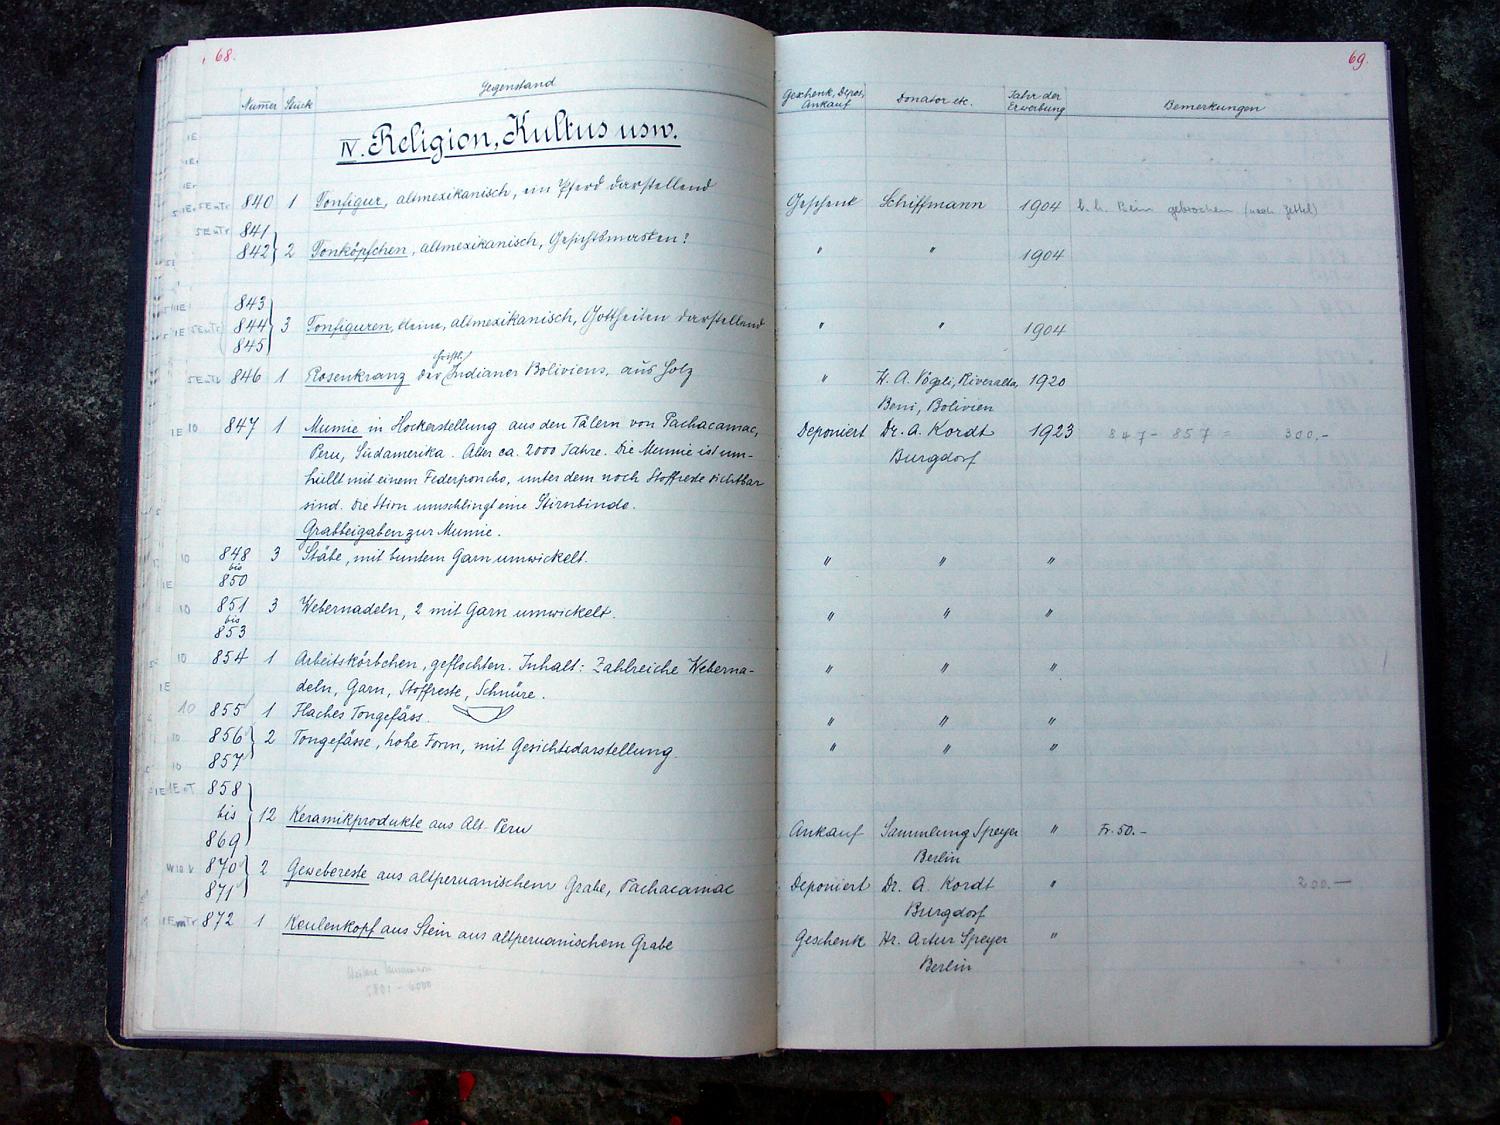 68.
Numer Stück Gegenstand
IV. Religion, Kultus usw.
840 1 Tonfigur, altmexikanisch, ein Pferd darstellend
841
842 2 Tonköpfchen, altmexikanisch, Gesichtsmasken?
843
844 3 Tonfiguren, kleine, altmexikanisch, Gottheiten darstellend
845
christl.
846 1 Rosenkranz der Indianer Boliviens, aus Holz
847 1 Mumie in Hockerstellung aus den Tälern von Pachacamac,
Peru, Südamerika. Alter ca. 2000 Jahre. Die Mumie ist um-
hüllt mit einem Federponcho, unter dem noch Stoffreste sichtbar
sind. Die Stirn umschlingt eine Stirnbinde.
Grabbeigaben zur Mumie.
848 3 Stäbe, mit buntem Garn umwickelt.
bis
850
851 3 Webernadeln, 2 mit Garn umwickelt.
bis
853
854 1 Arbeitskörbchen, geflochten. Inhalt: Zahlreiche Weberna-
deln, Garn, Stoffreste, Schnüre.
855 1 Flaches Tongefäss.
856 2 Tongefässe, hohe Form, mit Gesichtsdarstellung.
857
858
bis 12 Keramikprodukte aus Alt-Peru
869
870 2 Gewebereste aus altperuanischem Grabe, Pachacamac
871
872 1 Keulenkopf aus Stein aus altperuanischem Grabe
5801 - 6000
69.
Geschenk, Depos, Ankauf Donator etc. Jahr der Erwerbung Bemerkungen
Geschenk Schiffmann 1904 Bein gebrochen (nach Zettel)
" " 1904
" " 1904
" H. A. Vögeli, Riveralta, 1920
Beni, Bolivien
Deponiert Dr. A. Kordt 1923 847 - 857 = 300.-
Burgdorf
" " "
" " "
" " "
" " "
" " "
Ankauf Sammlung Speyer " Fr. 50.-
Berlin
Deponiert Dr. A. Kordt " 200.—
Burgdorf
Geschenk Hr. Artur Speyer "
Berlin